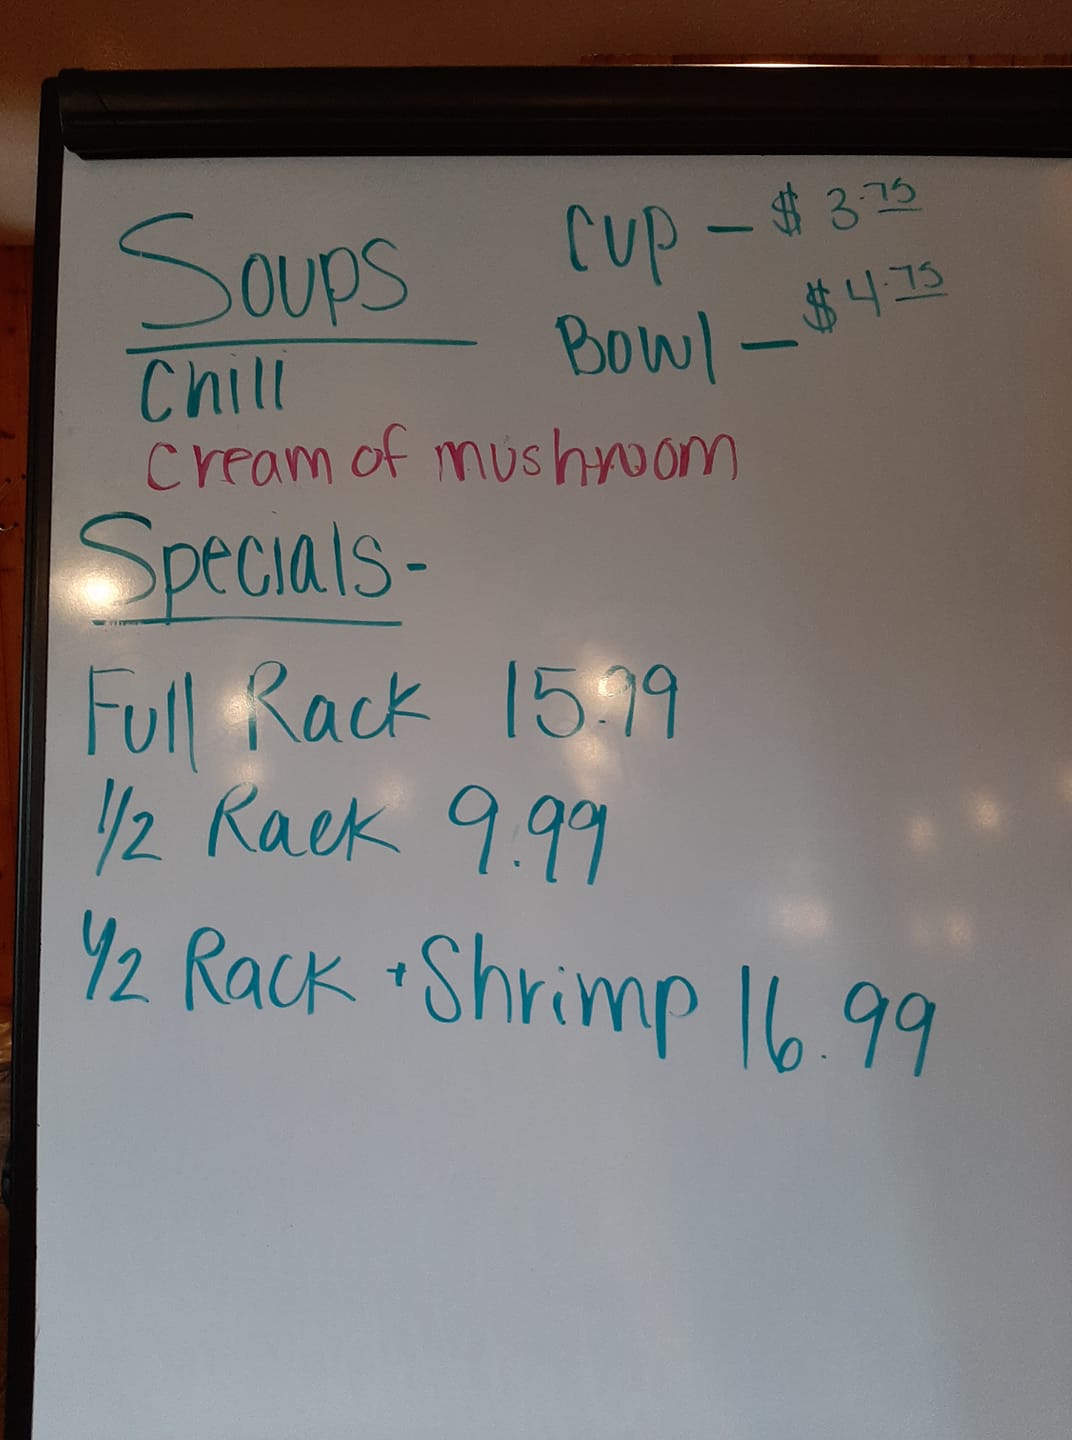 Soups
Cup - $3.75
Bowl - $4.75
Chili
cream of mushroom
Specials-
Full Rack 15.99
1/2 Rack 9.99
1/2 Rack + Shrimp 16.99